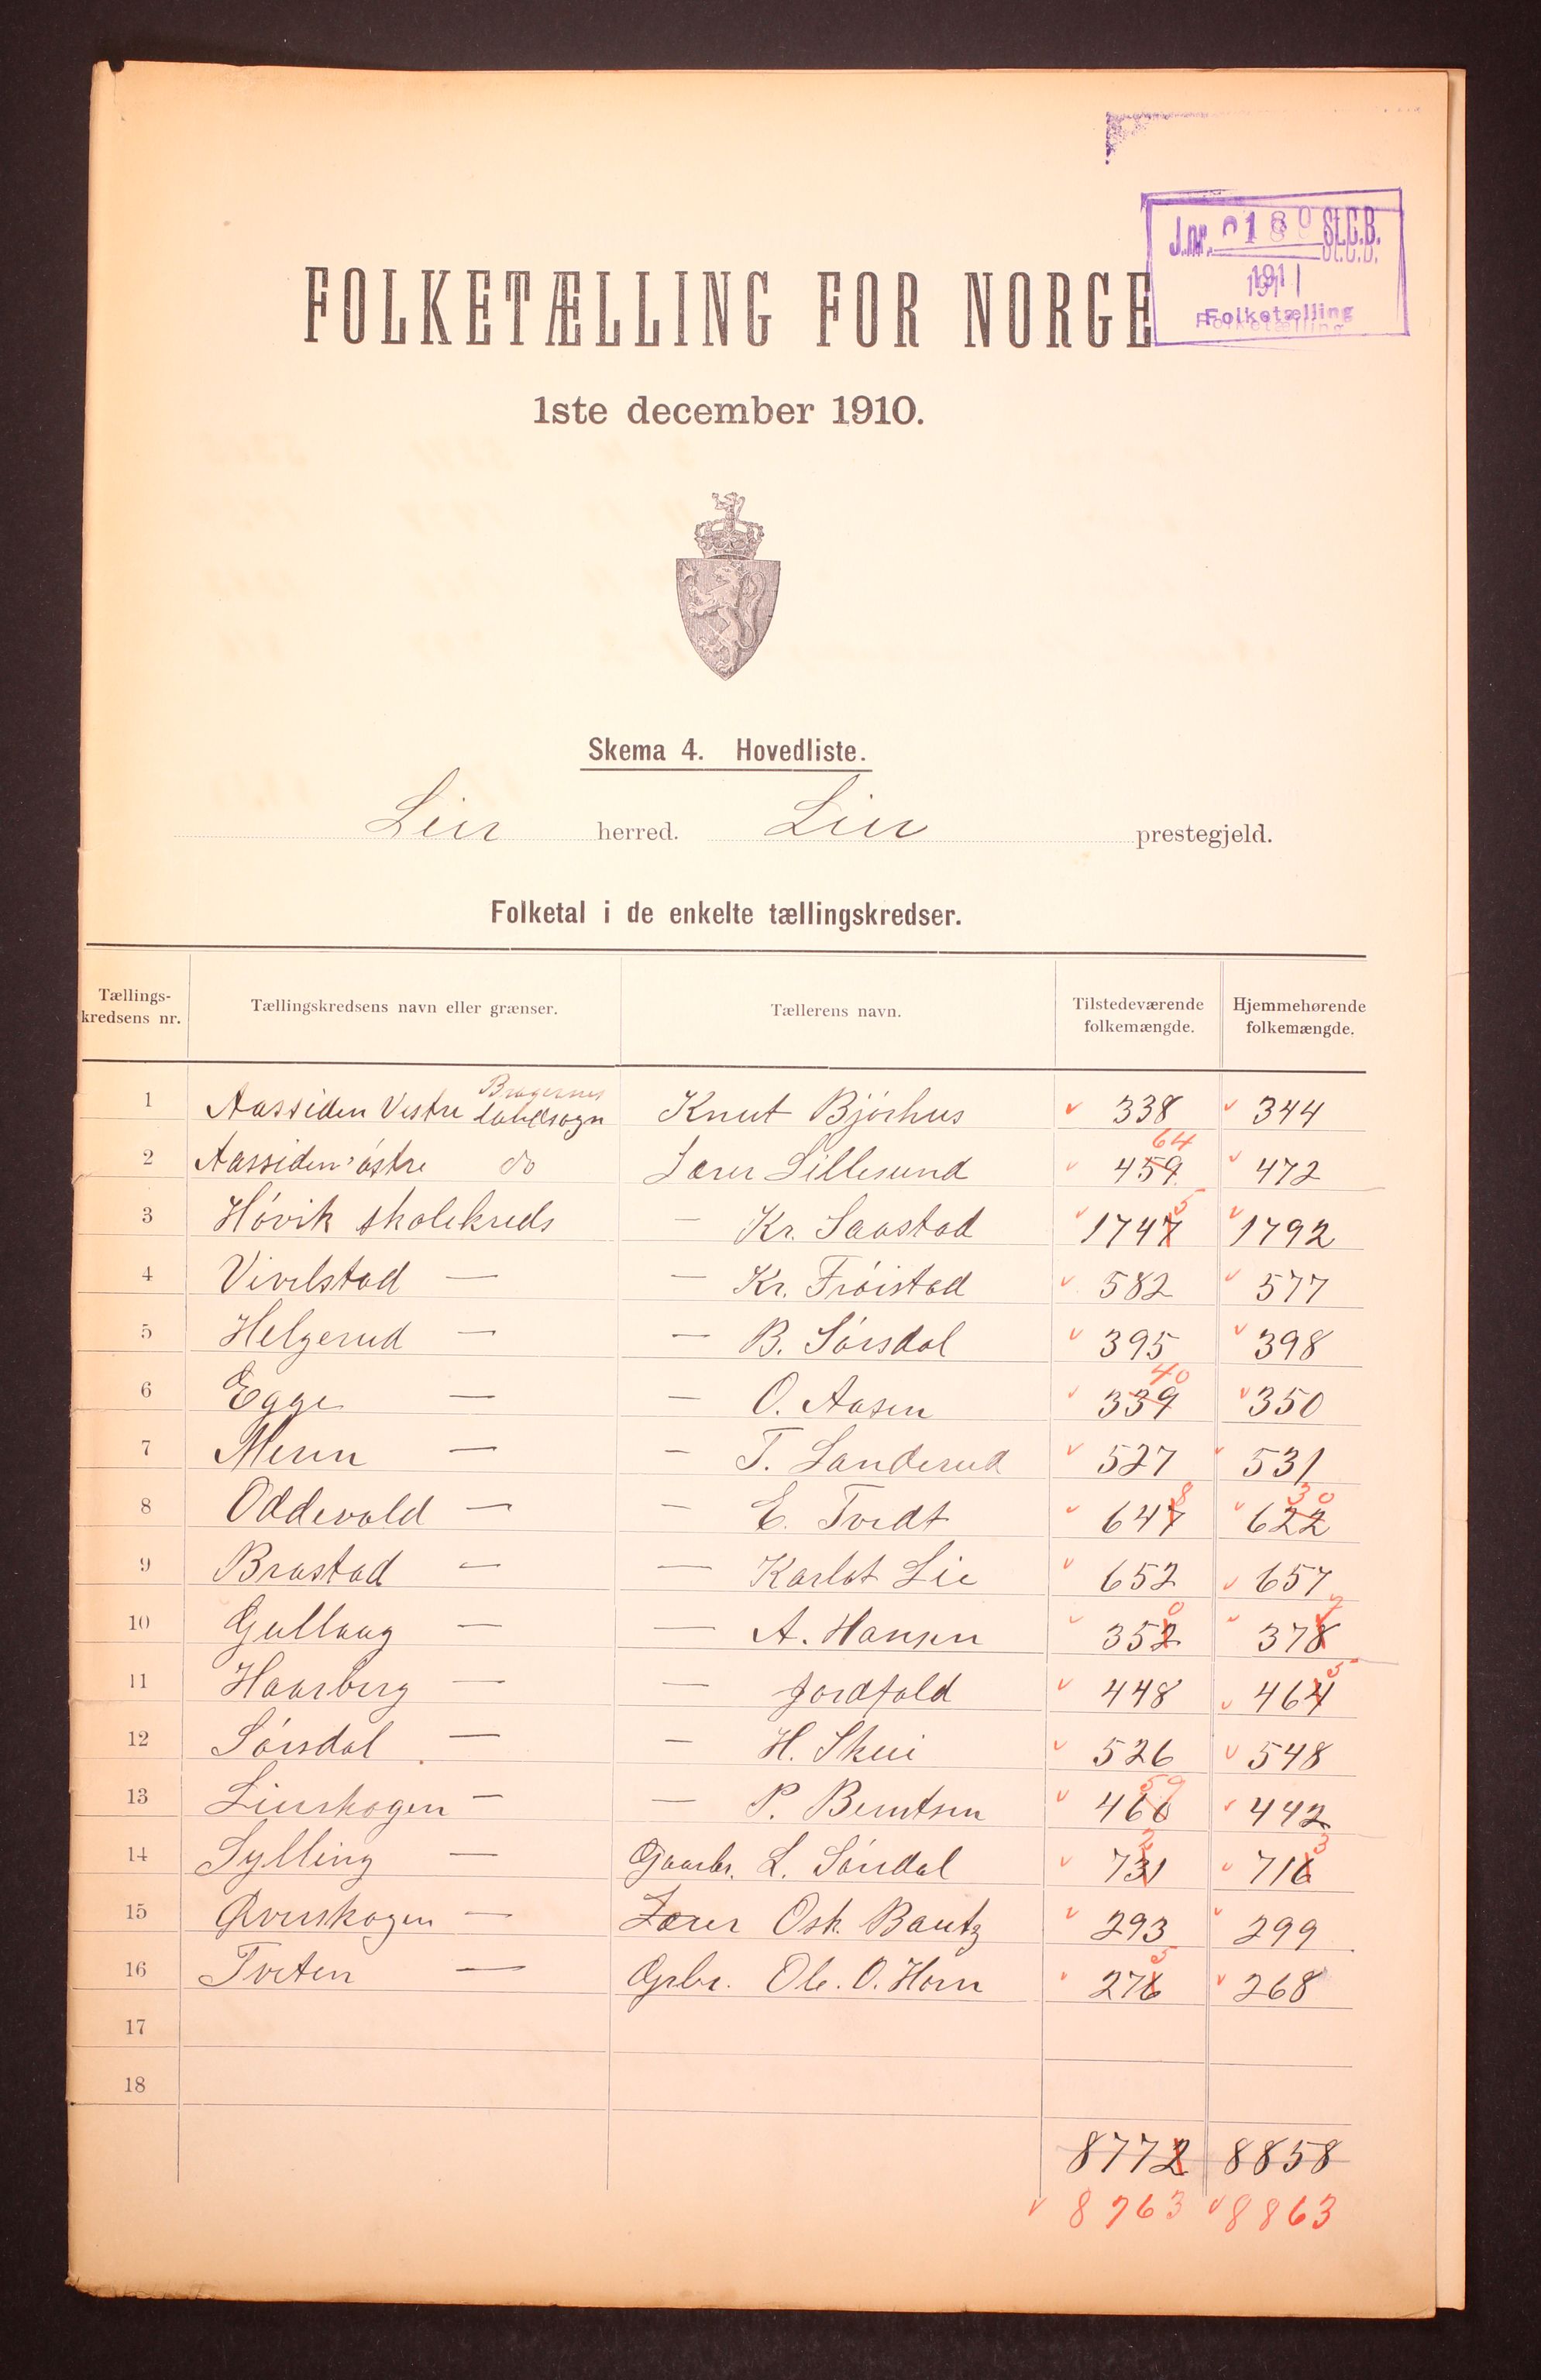 J.nr. 0180 St.C.B.
1911
Folketælling
FOLKETÆLLING FOR NORGE
1ste december 1910.
Skema 4. Hovedliste.
Lier herred. Lier prestegjeld.
Folketal i de enkelte tællingskredser.
Tællings-kredsens nr. Tællingskredsens navn eller grænser. Tællerens navn. Tilstedeværende folkemængde. Hjemmehørende folkemængde.
1 Aassiden Vestre Bragernes landsogn Knut Bjørhus 338 344
64
2 Aassiden østre do Lærer Lillesund 459 472
5
3 Høvik skolekreds — Kr. Saastad 1747 1792
4 Vivelstad — — Kr. Frøistad 582 577
5 Helgerud — — B. Sørsdal 395 398
40
6 Egge — — O. Aasen 339 350
7 Meren — — T. Landerud 527 531
8 30
8 Oddevald — — E. Tvedt 647 622
9 Brastad — — Karlot Lie 652 657
0 7
10 Gullaug — — A. Hansen 352 378
5
11 Haarberg — — Jordfald 448 464
12 Sørsdal — — H. Skui 526 548
59
13 Lierskogen — — P. Berntsen 460 442
2 3
14 Sylling — Gaarbr. L. Sørsdal 731 716
15 Øverskogen — Lærer Osk. Bautz 293 299
5
16 Tveten — Grbr. Ole. O. Horn 276 268
17
18
8772 8858
8763 8863